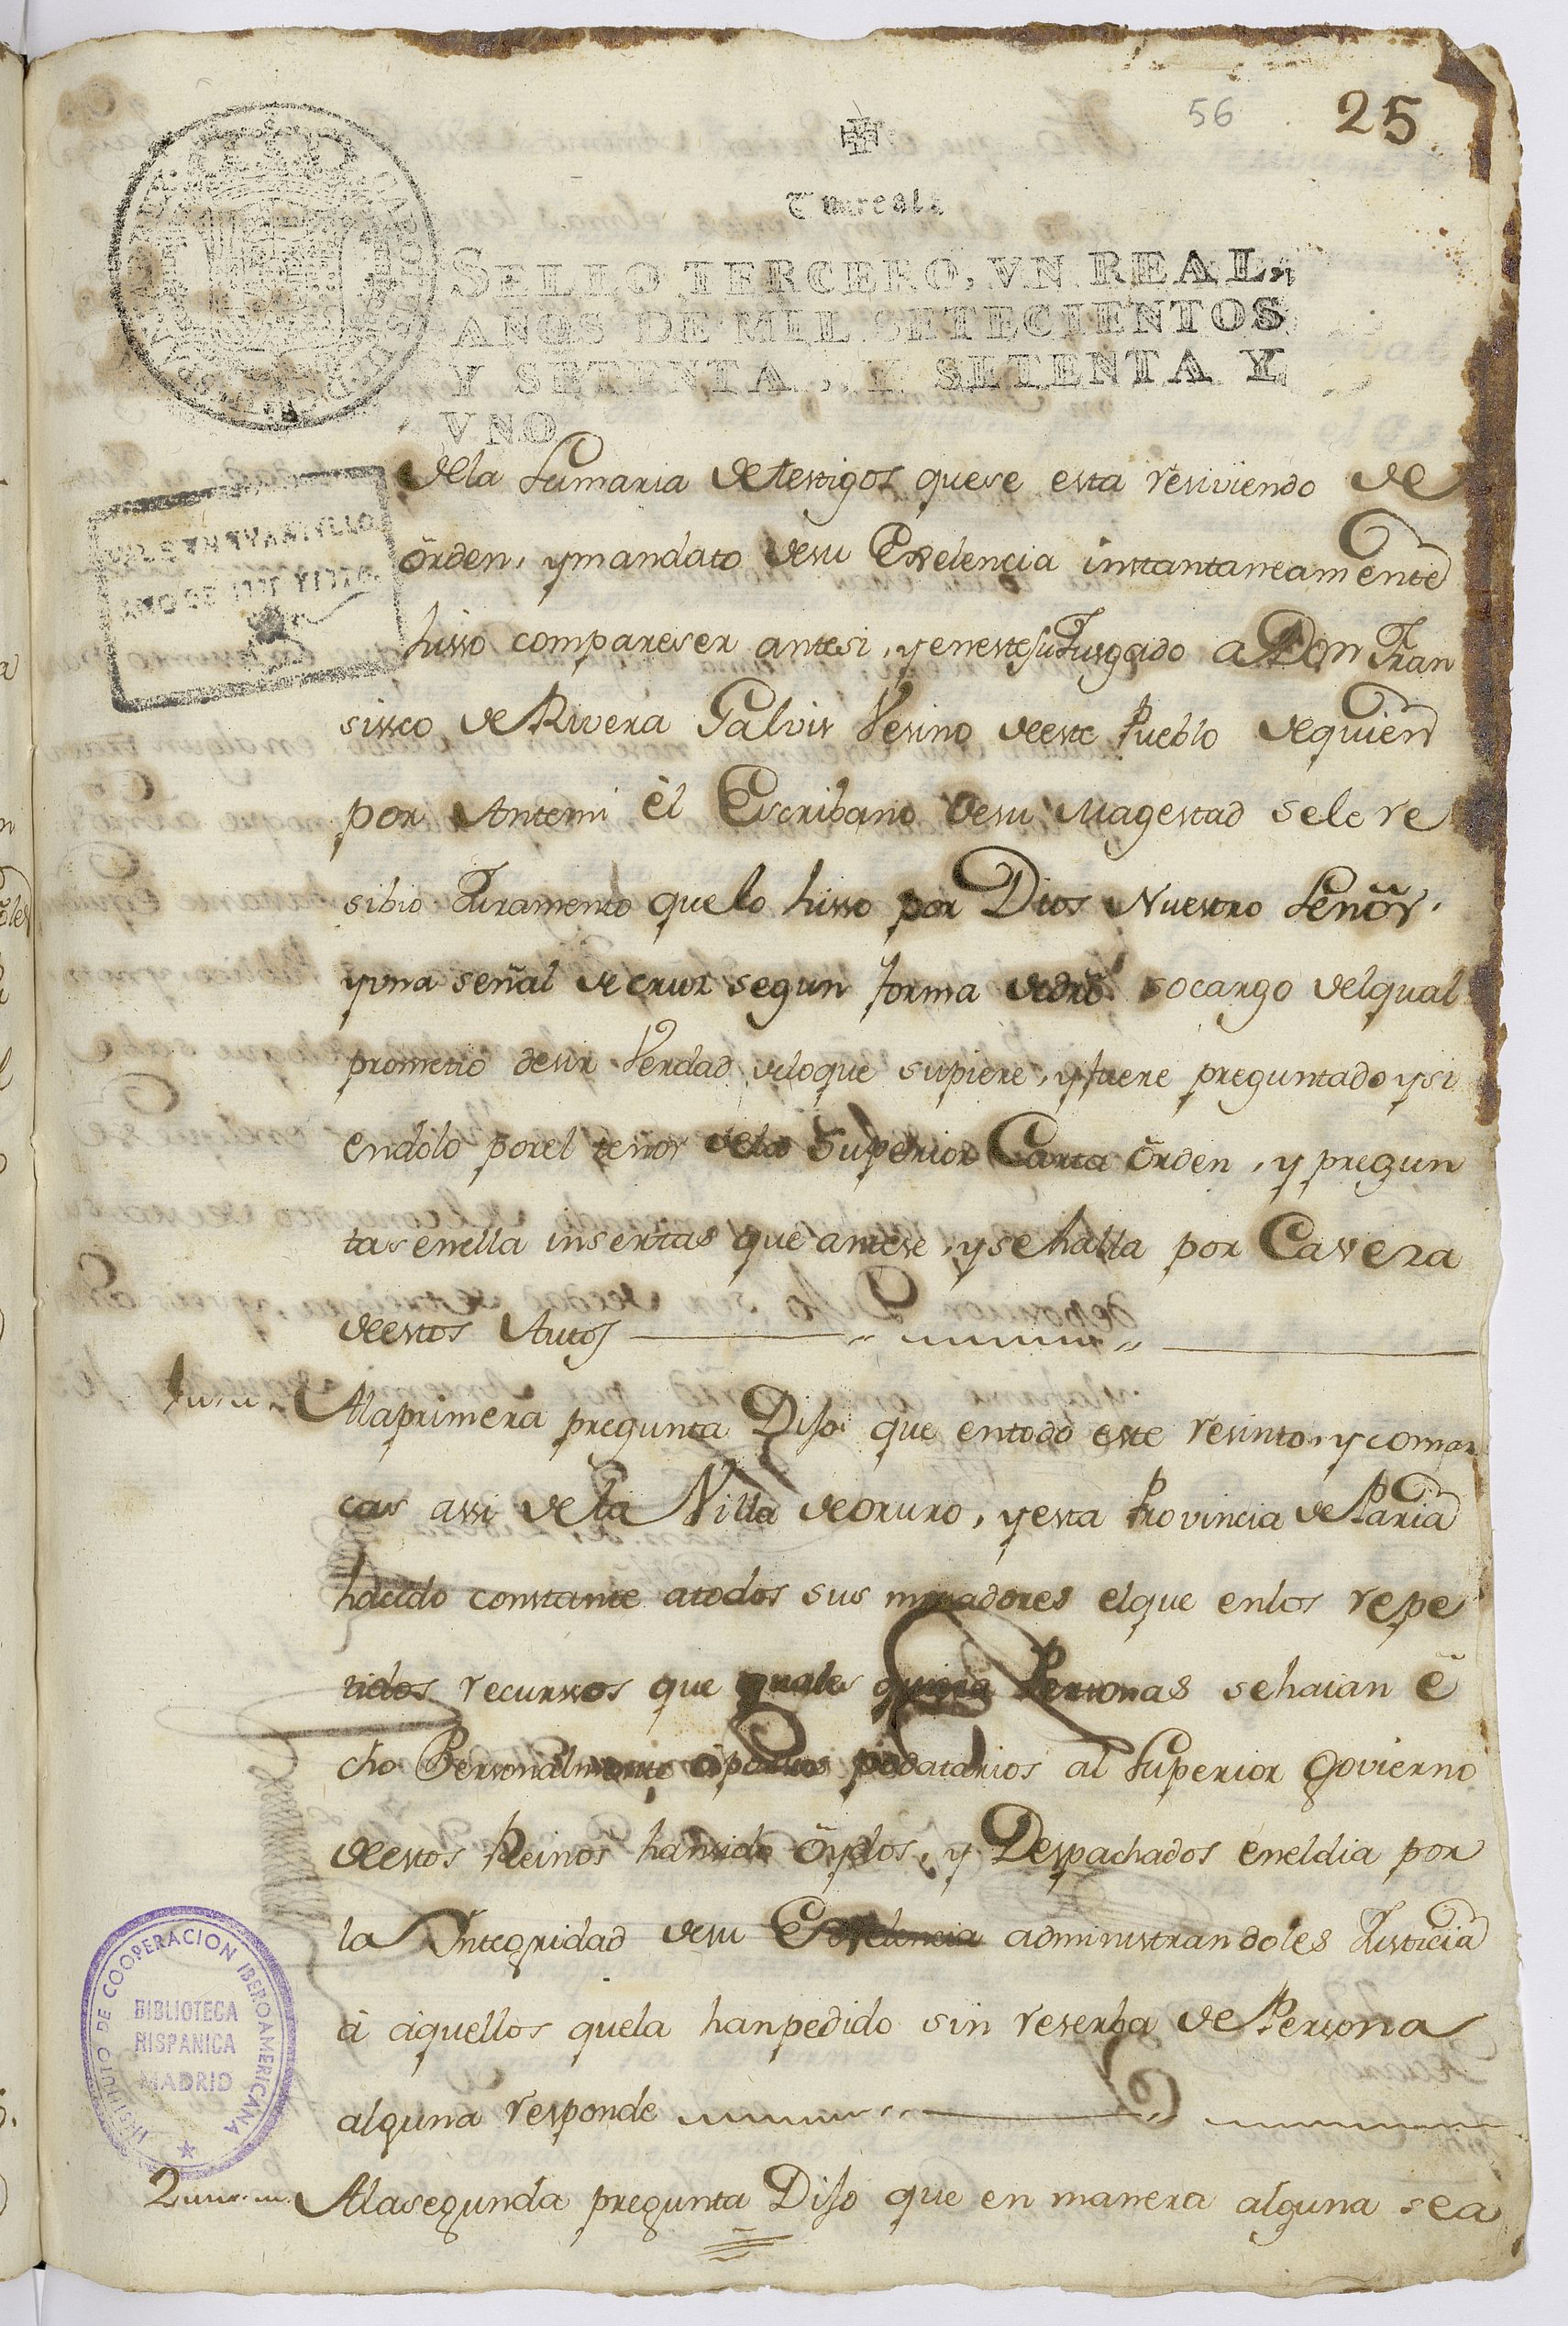 56 25
Un real.
SELLO TERCERO, VN REAL,
AÑOS DE MIL SETECIENTOS
Y SETENTA, Y SETENTA Y
VNO
dela Sumaria detestigos quese esta resiviendo de
orden, ymandato desu Exelencia instantaneamente
hisso compareser antesi, yenestesu Jusgado a Don Fran
sisco de Rivera Galvis Vesino deeste Pueblo dequien
por Antemi èl Escribano desu Magestad sele re
sibió Juramento quelo hisso por Dios Nuestro Señor,
yuna señal de crus segun forma dedro. socargo delqual
prometió desir Verdad deloque supiere, yfuere preguntado ysi
endolo porel tenor dela Superior Carta orden, y pregun
tas enella insertas que antese, ysehalla por Cavesa
deestos Autos
1
Alaprimera pregunta Dijo que entodo este resinto, ycomar
cas assi dela Villa deoruro, yesta Provincia de Paria
hacido constante atodos sus moradores elque enlos repe
tidos recurssos que quales quiera Personas sehaian e
cho Personalmente ó por sus podatarios al Superior Govierno
deestos Reinos hansido oydos, y Despachados eneldia por
la Integridad desu Exelencia administrandoles Justicia
à àquellos quela hanpedido sin reserba de Persona
alguna responde
2 Alasegunda pregunta Dijo que en manera alguna sea
INSTITUTO DE COOPERACION IBEROAMERICANA
BIBLIOTECA
HISPANICA
MADRID